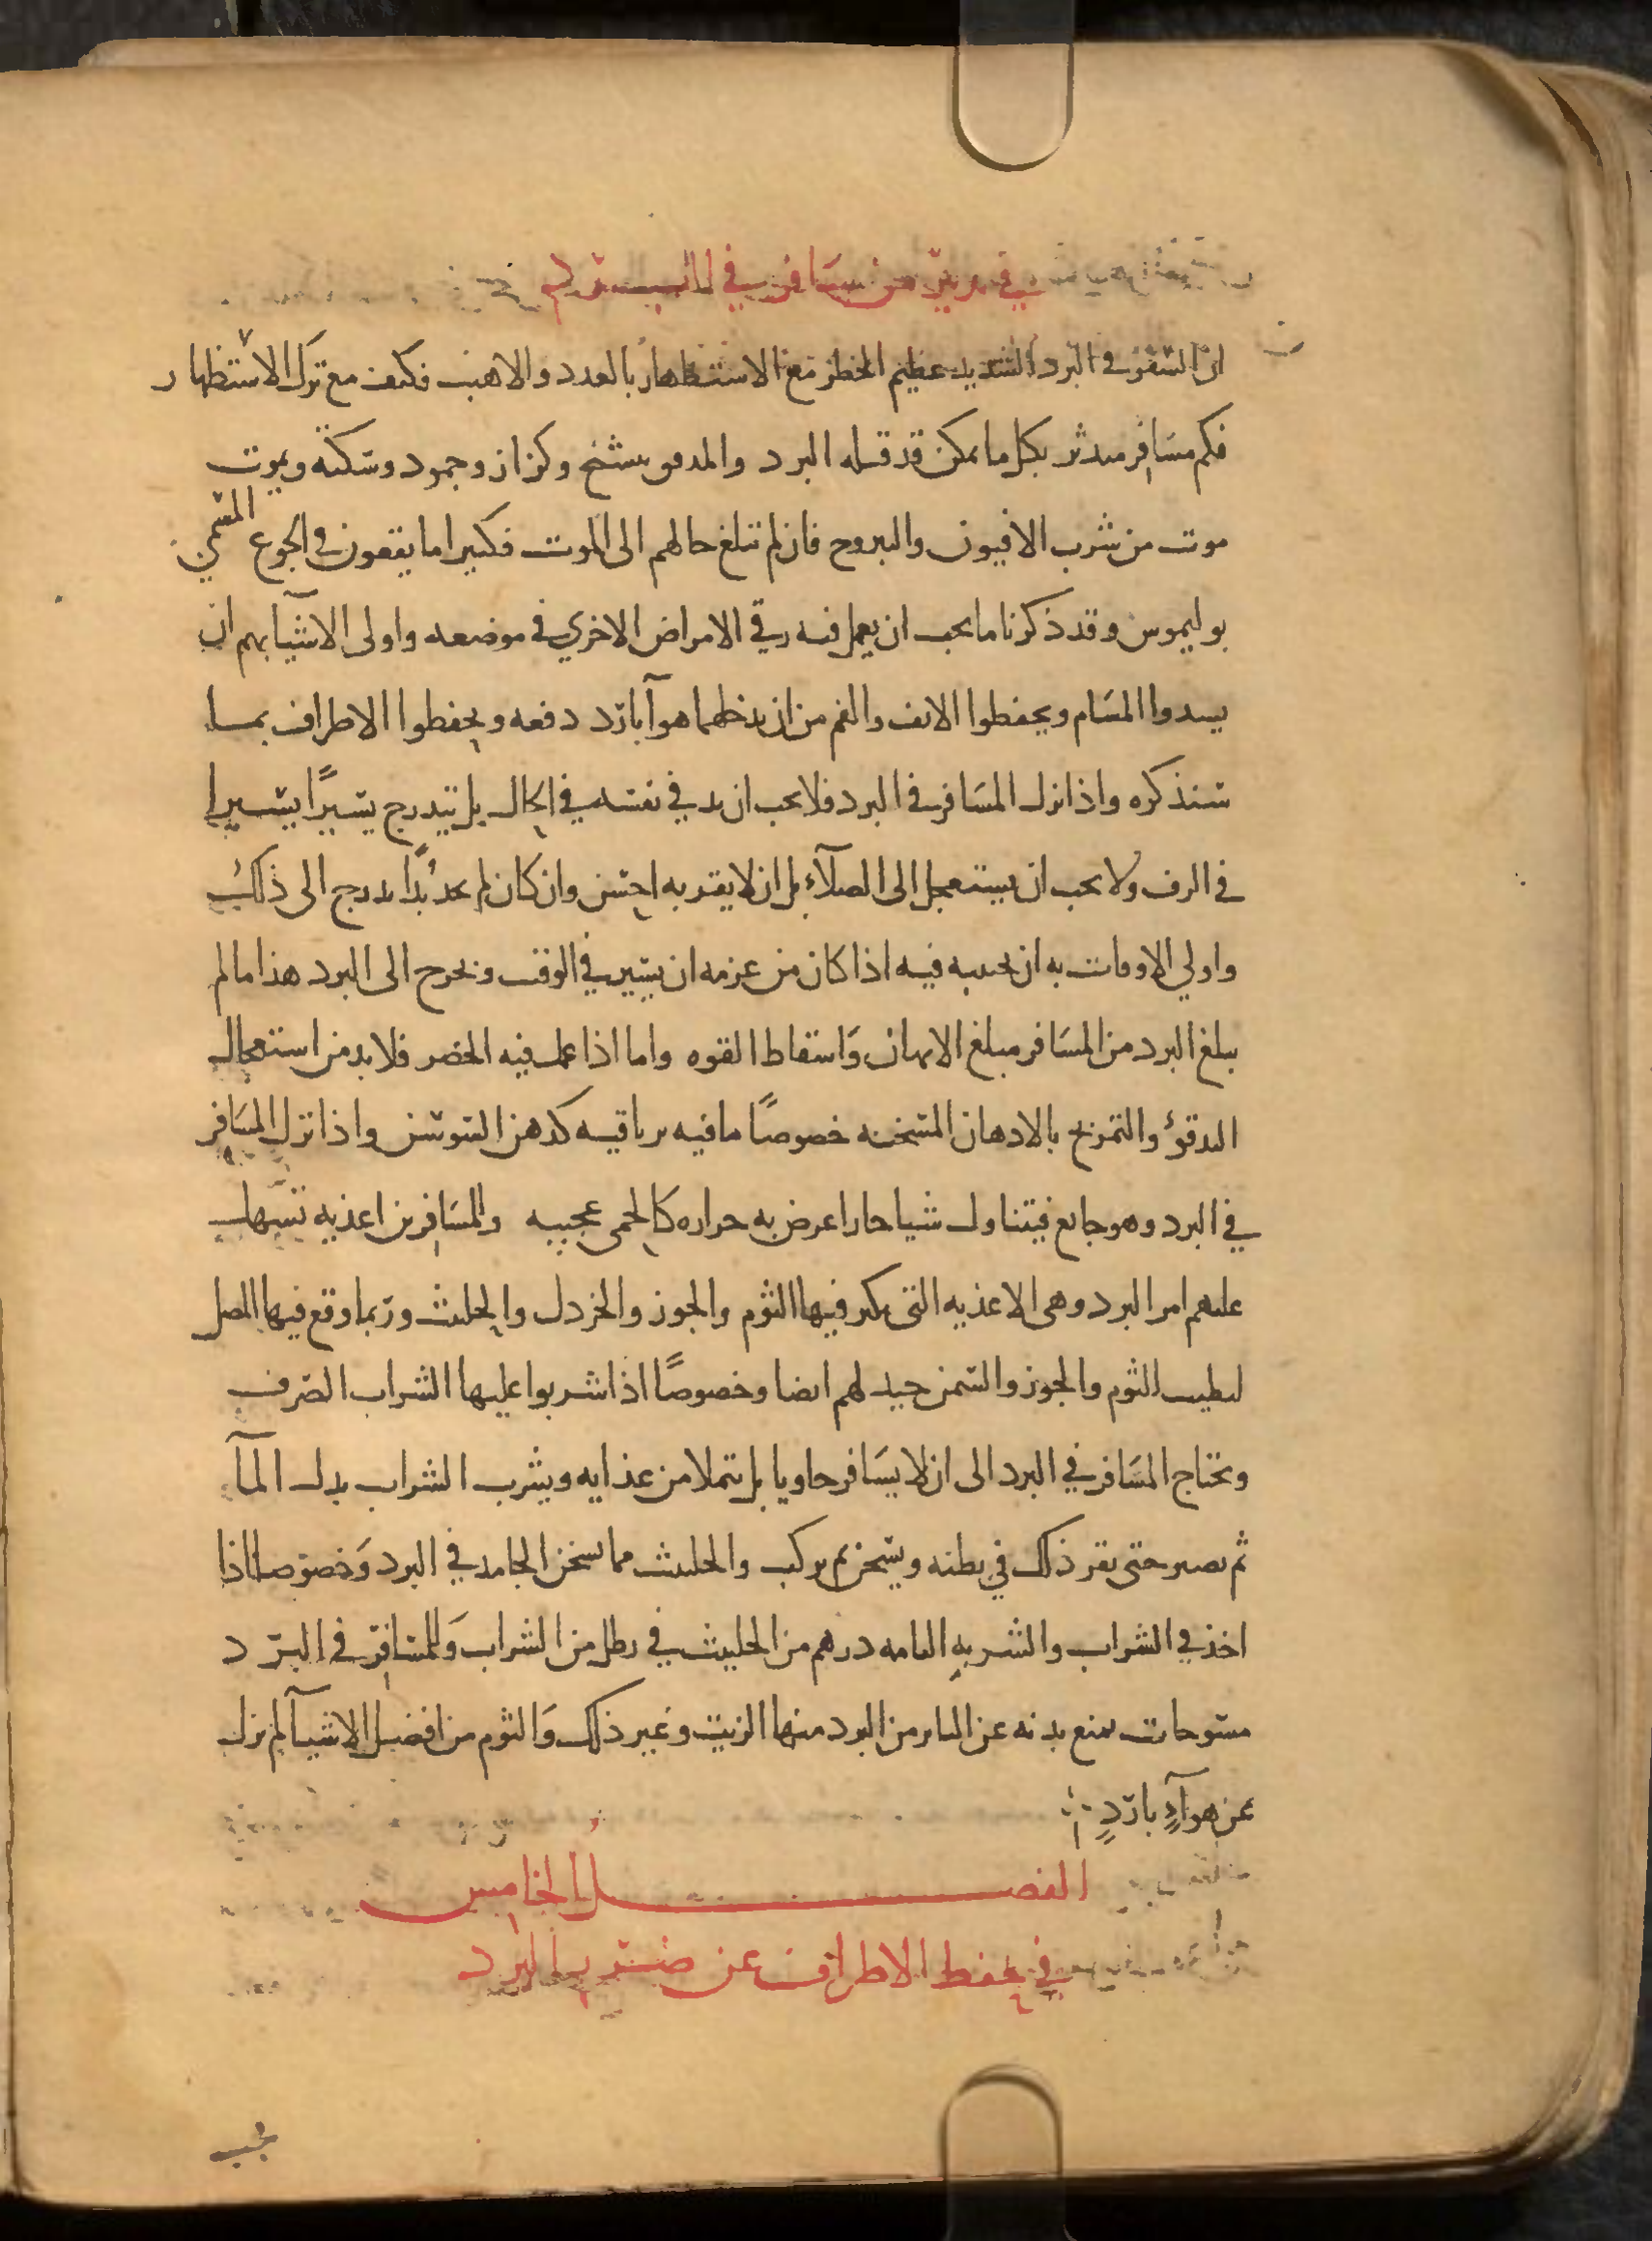 في تدبير من يسافر في البرد
ان السفر في البرد الشديد عظيم الخطر مع الاستظهار بالعدد والاهب فكيف مع ترك الاستظهار
فكم مسافر متدثر بكل ما يمكن قد قتله البرد والدمق بتشنج وكزاز وجمود وسكته ويموت
موت من شرب الافيون واليبروح فان لم تبلغ حالهم الى الموت فكثيرا ما يقعون في الجوع المسمي
بوليموس وقد ذكرنا ما يجب ان يعمل فيه وفي الامراض الاخري في موضعه واولى الاشيآ بهم ان
يسدوا المسام ويحفظوا الانف والفم من ان يدخلهما هوآ بارد دفعه ويحفظوا الاطراف بما
سنذكره واذا نزل المسافر في البرد فلا يجب ان يدفي نفسه في الحال بل يتدرج يسيرًا يسيرا
في الدف ولا يجب ان يستعجل الى الصلآء بل ان لا يقربه احسن وان كان لم يجد بُدًا يدرج الى ذلك
واولي الاوقات به ان يجنبه فيه اذا كان من عزمه ان يسير في الوقت ويخرج الى البرد هذا ما لم
يبلغ البرد من المسافر مبلغ الايهان واسقاط القوه واما اذا عمل فيه الخصر فلا بد من استعجال
التدفؤ والتمريخ بالادهان المسخنه خصوصًا ما فيه ترياقيه كدهن السوسن واذا نزل المسافر
في البرد وهو جايع فيتناول شيا حارا عرض به حراره كالحمى عجيبه وللمسافرين اغذيه تسهل
عليهم امر البرد وهي الاغذيه التي يكثر فيها الثوم والجوز والخردل والحلتيت وربما وقع فيها المصل
ليطيب الثوم والجوز والسمن جيد لهم ايضا وخصوصًا اذا شربوا عليها الشراب الصرف
ويحتاج المسافر في البرد الى ان لا يسافر خاويا بل يتملا من غذايه ويشرب الشراب بدل المآ
ثم يصبر حتى يقر ذلك في بطنه ويسخن ثم يركب والحلتيت مما يسخن الجامد في البرد وخصوصا اذا
اخذ في الشراب والشربه التامه درهم من الحلتيت في رطل من الشراب وللمسافر في البرد
مسوحات تمنع بدنه عن التاثر من البرد منها الزيت وغير ذلك والثوم من افضل الاشيآ لمن نزل
عن هوآءٍ باردٍ
الفصل الخامس
في حفظ الاطراف عن ضرب البرد
يجب